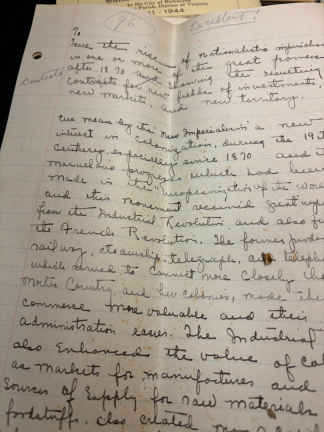 11-1944
96
Excellent!
To
Trace the rise of nationalistic imperialism
in one or more of the great powers
after 1870 and showing the resulting
contests for new fields of investments,
new markets, and new territory.
We mean by the New Imperialism a new
interest in colonization, during the 19th
century, especially since 1870 and the
marvelous progress which had been
made in the "Europeanization of the World"
and this movement received great impetus
from the Industrial Revolution and also from
the French Revolution. The former produced
railway, steamship, telegraph, and telephone
which served to connect more closely the
Mother Country and her colonies, made their
commerce more valuable and their
administration easier. The Industrial
also enhanced the value of col
as markets for manufactures and
sources of supply for raw materials
foodstuff. Also created